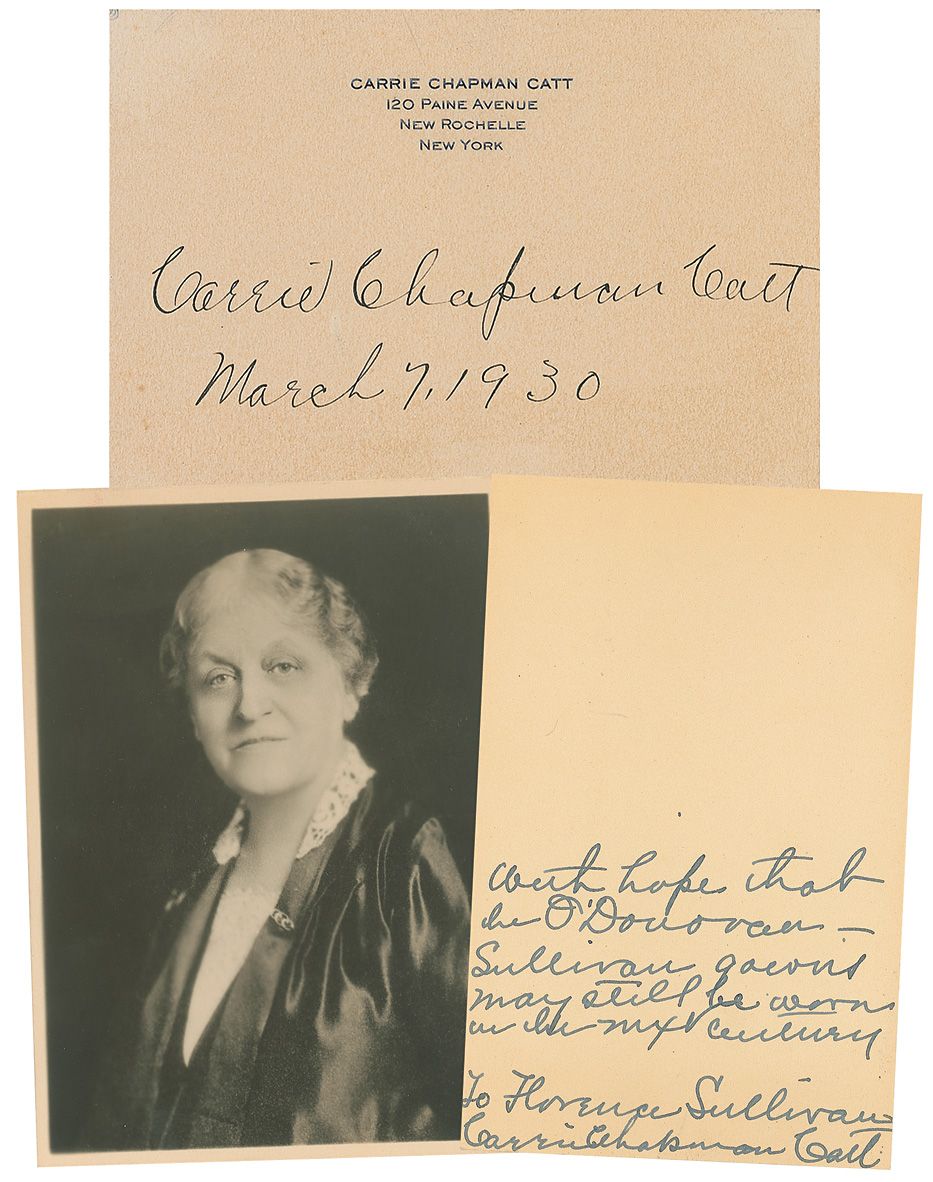 CARRIE CHAPMAN CATT
120 PAINE AVENUE
NEW ROCHELLE
NEW YORK
Carrie Chapman Catt
March 7, 1930
with hope that
the O'Donovan —
Sullivan gowns
may still be worn
in the next century
To Florence Sullivan —
Carrie Chapman Catt